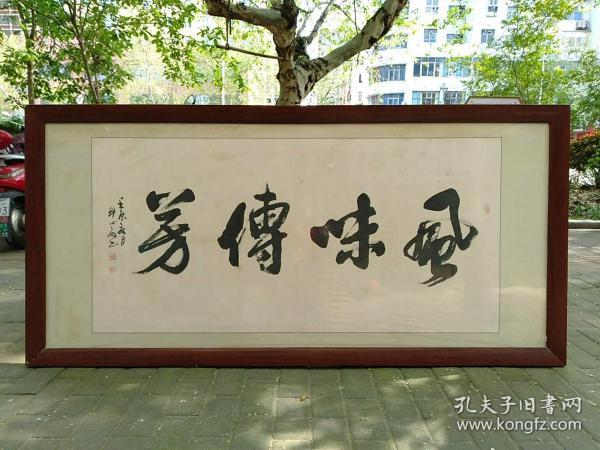 風味傳芳
孔夫子旧书网
www.kongfz.com